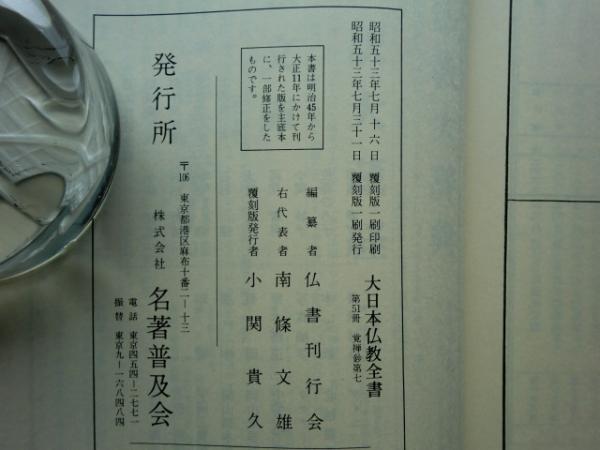 大日本仏教全書
第51冊 覚禅鈔第七
昭和五十三年七月 十六日 覆刻版一刷印刷
昭和五十三年七月三十一日 覆刻版一刷発行
本書は明治45年から
大正11年にかけて刊
行された版を主底本
に、一部修正をした
ものです。
編纂者 仏書刊行会
右代表者 南條文雄
覆刻版発行者 小関貴久
発行所
〒106 東京都港区麻布十番二ー十三
株式会社 名著普及会
電話 東京四五四ー二七七一
振替 東京九ー一六八四八四